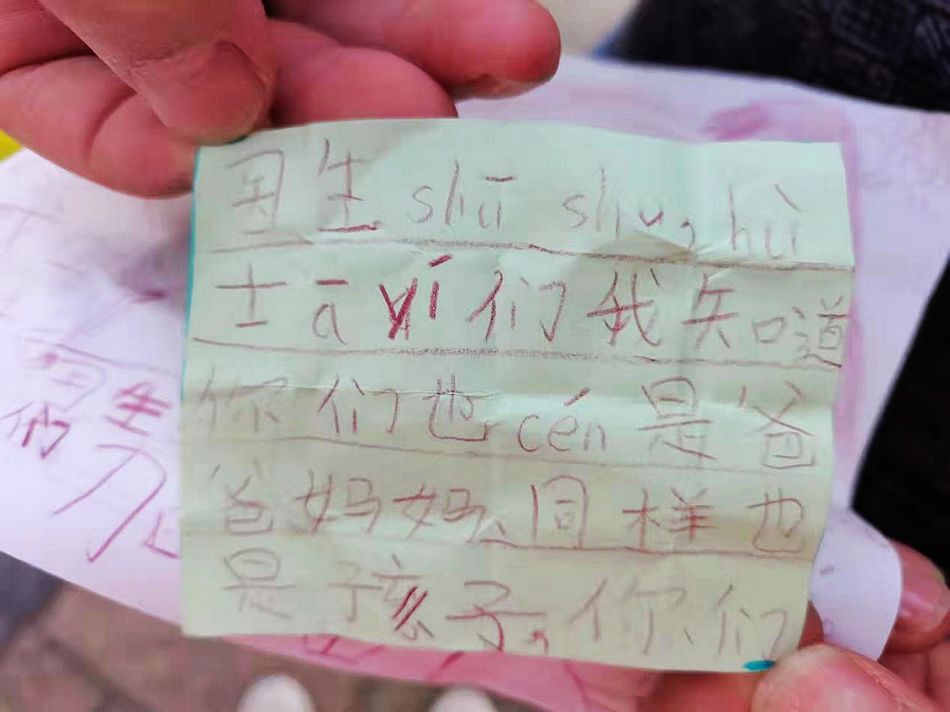 医生 shū shu, hù
士 ā yí 们我知道
你们也 cén 是爸
爸妈妈、同样也
是孩子,你们
生
们